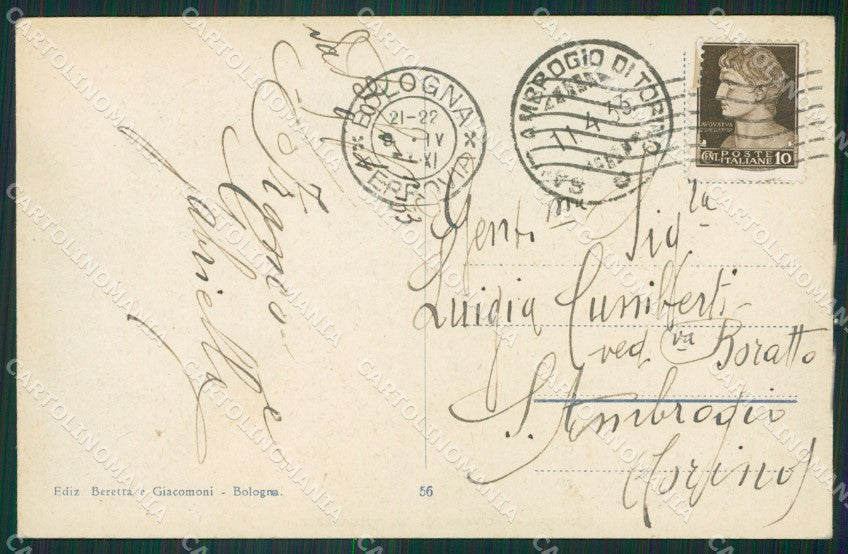 BOLOGNA
21-22
IV
XI
FERROVIA
S. AMBROGIO DI TORINO
11.4.33
AVGVSTVS
POSTE
CENT. ITALIANE 10
Gent.ma Sig.ra
Luigia Cuniberti
ved.va Boratto
S. Ambrogio
(Torino)
Gabriella
Ediz Beretta e Giacomoni - Bologna.
56
CARTOLINOMANIA